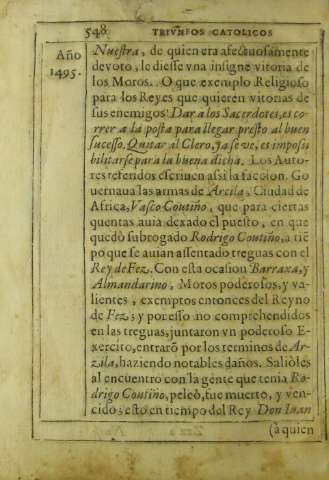 548. TRIVNFOS CATOLICOS
Año
1495.
Nuestra, de quien era afectuosamente
devoto, le diesse vna insigne vitoria de
los Moros. O que exemplo Religioso
para los Reyes que quieren vitorias de
sus enemigos! Dar a los Sacerdotes, es co-
rrer a la posta para llegar presto al buen
sucesso. Quitar al Clero, ya se ve, es imposi
bilitarse para la buena dicha. Los Auto-
res referidos escriuen assi la faccion. Go
uernaua las armas de Arcila, Ciudad de
Africa, Vasco Coutiño, que para ciertas
quentas auia dexado el puesto, en que
quedò subrogado Rodrigo Coutiño, a tiē
po que se auian assentado treguas con el
Rey de Fez. Con esta ocasion Barraxa, y
Almandarino, Moros poderosos, y va-
lientes, exemptos entonces del Reyno
de Fez; y por esso no comprehendidos
en las treguas, juntaron vn poderoso E-
xercito, entrarō por los terminos de Ar-
zila, haziendo notables daños. Saliòles
al encuentro con la gente que tenia Ro-
drigo Coutiño, peleò, fue muerto, y ven-
cido; esto en tiempo del Rey Don Iuan
(à quien